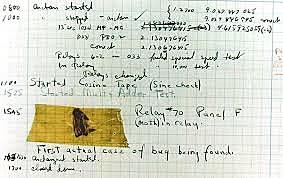 0800 antan started
1000 " stopped - antan
13'uc (032) MP-MC
(033) PRO 2 2.130476415
correct 2.130676415
Relays 6-2 in 033 failed special speed test
in relay
Relays changed
1100 Started Cosine Tape (Sine check)
1525 Started Multy Adder Test
1545 Relay #70 Panel F
(moth) in relay.
First actual case of bug being found.
antangent started.
1700 closed down.